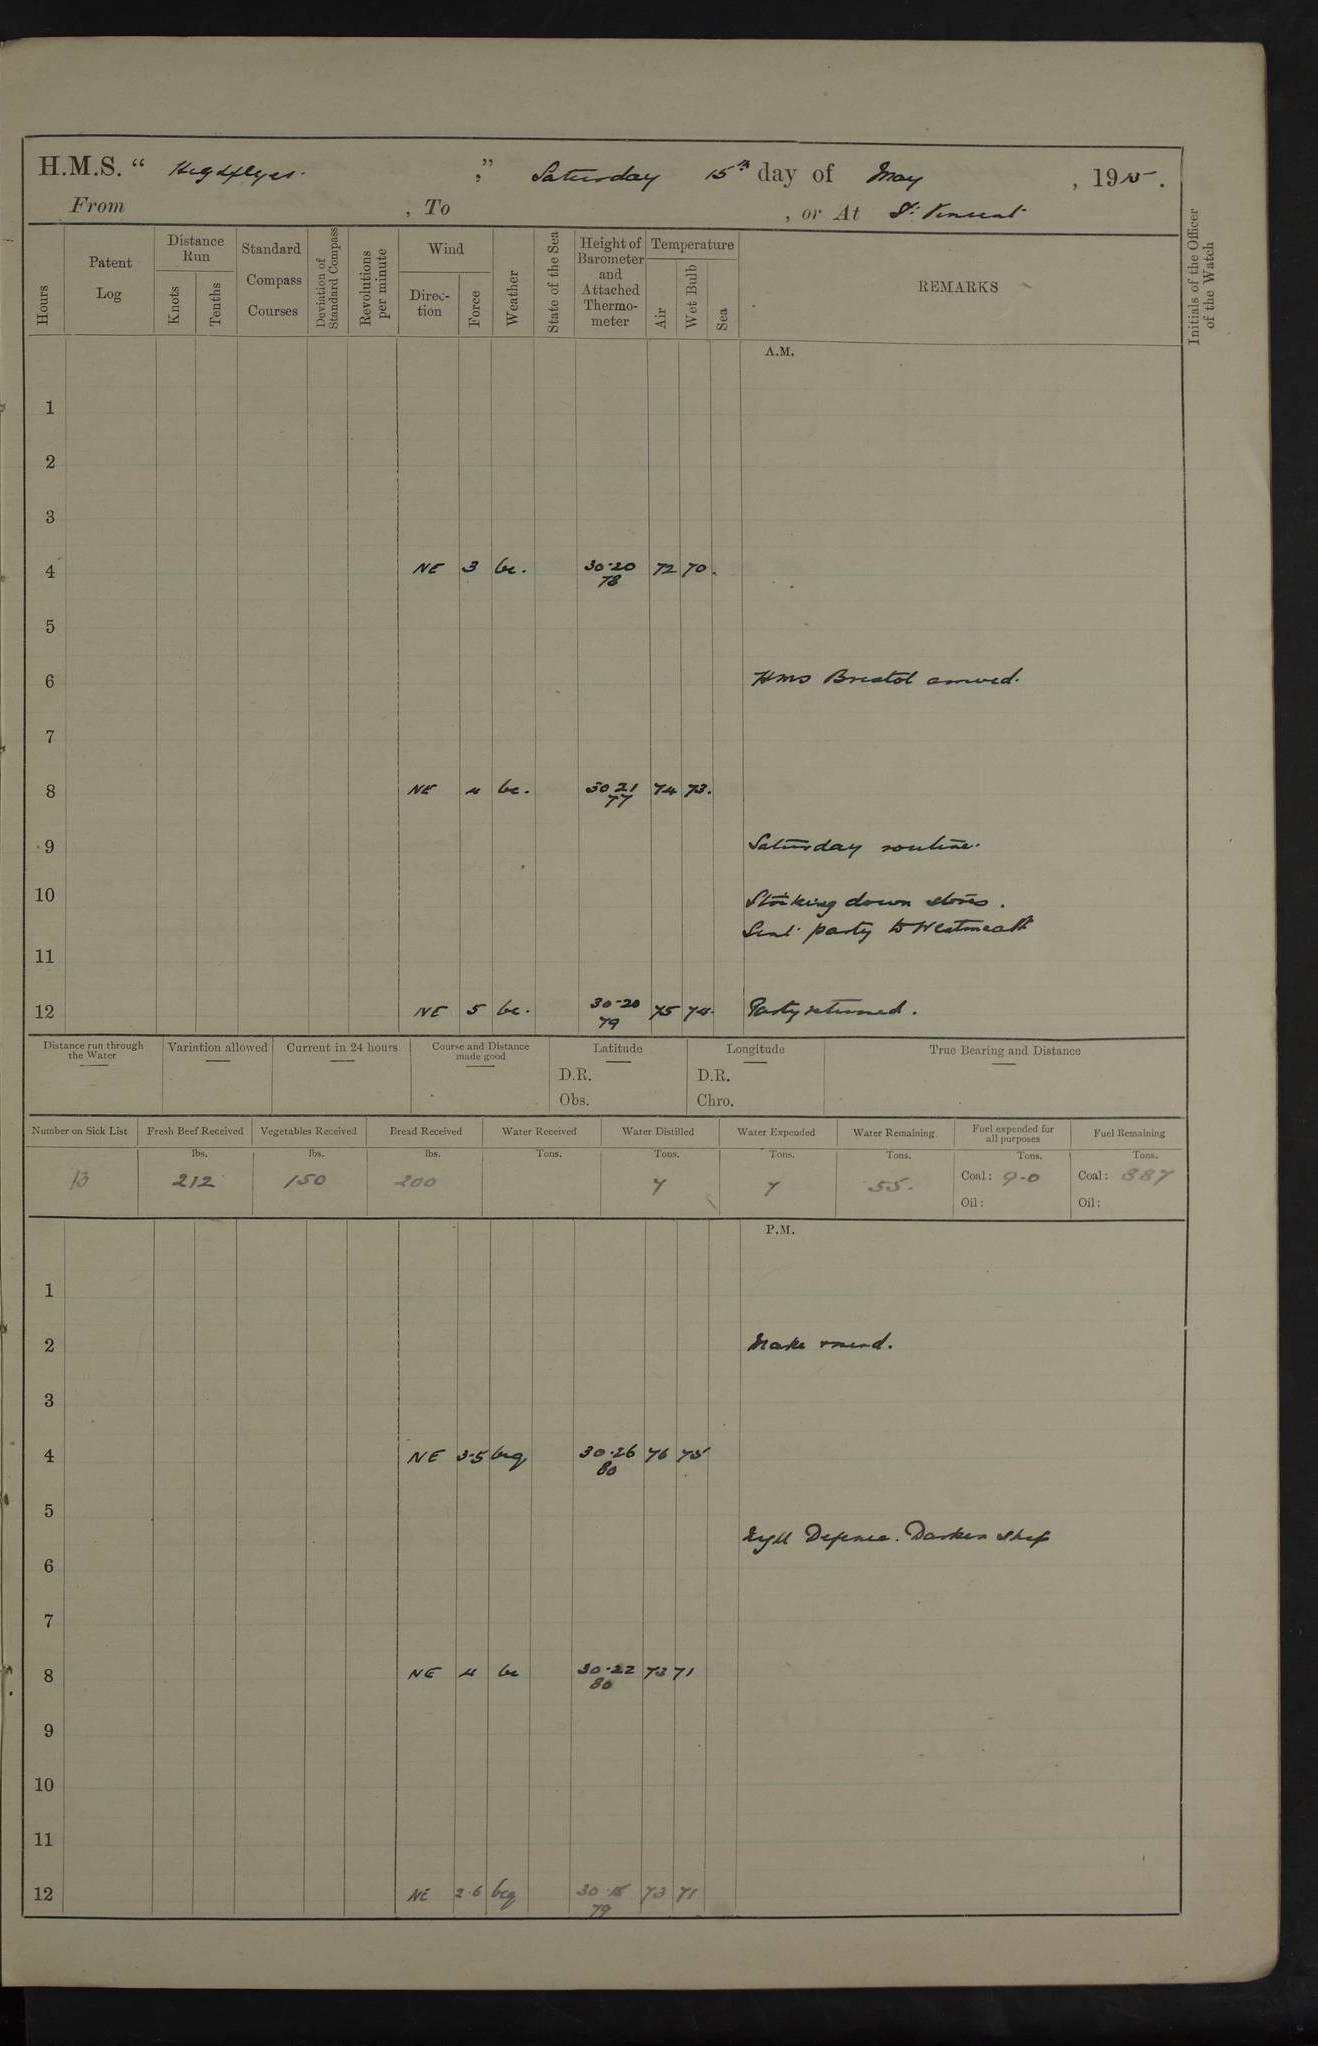 H.M.S. " Highflyer. ," Saturday 15th day of May , 1915.
From , To , or At St. Vincent
Hours Patent Log Distance Run Knots Tenths Standard Compass Courses Deviation of Standard Compass Revolutions per minute Wind Direc-tion Force Weather State of the Sea Height of Barometer and Attached Thermo-meter Temperature Air Wet Bulb Sea REMARKS Initials of the Officer of the Watch
A.M.
1
2
3
4 NE 3 bc. 30.20 72 70.
78
5
6 HMS Bristol arrived.
7
8 NE 4 bc. 30 21 74 73.
77
9 Saturday routine.
10 Striking down stores.
Sent party to Westmeath
11
12 NE 5 bc. 30-20 75 74. Party returned.
79
Distance run through the Water Variation allowed Current in 24 hours Course and Distance made good Latitude Longitude True Bearing and Distance
D.R. D.R.
Obs. Chro.
Number on Sick List Fresh Beef Received Vegetables Received Bread Received Water Received Water Distilled Water Expended Water Remaining Fuel expended for all purposes Fuel Remaining
lbs. lbs. lbs. Tons. Tons. Tons. Tons. Tons. Tons.
13 212 150 200 7 7 55. Coal: 9-0 Coal: 887
Oil: Oil:
P.M.
1
2 Make mend.
3
4 NE 3-5 bcq 30.26 76 75
80
5
Night Defence. Darken Ship
6
7
8 NE 4 bc 30.22 73 71
80
9
10
11
12 NE 2-6 bcq 30 73 71
79